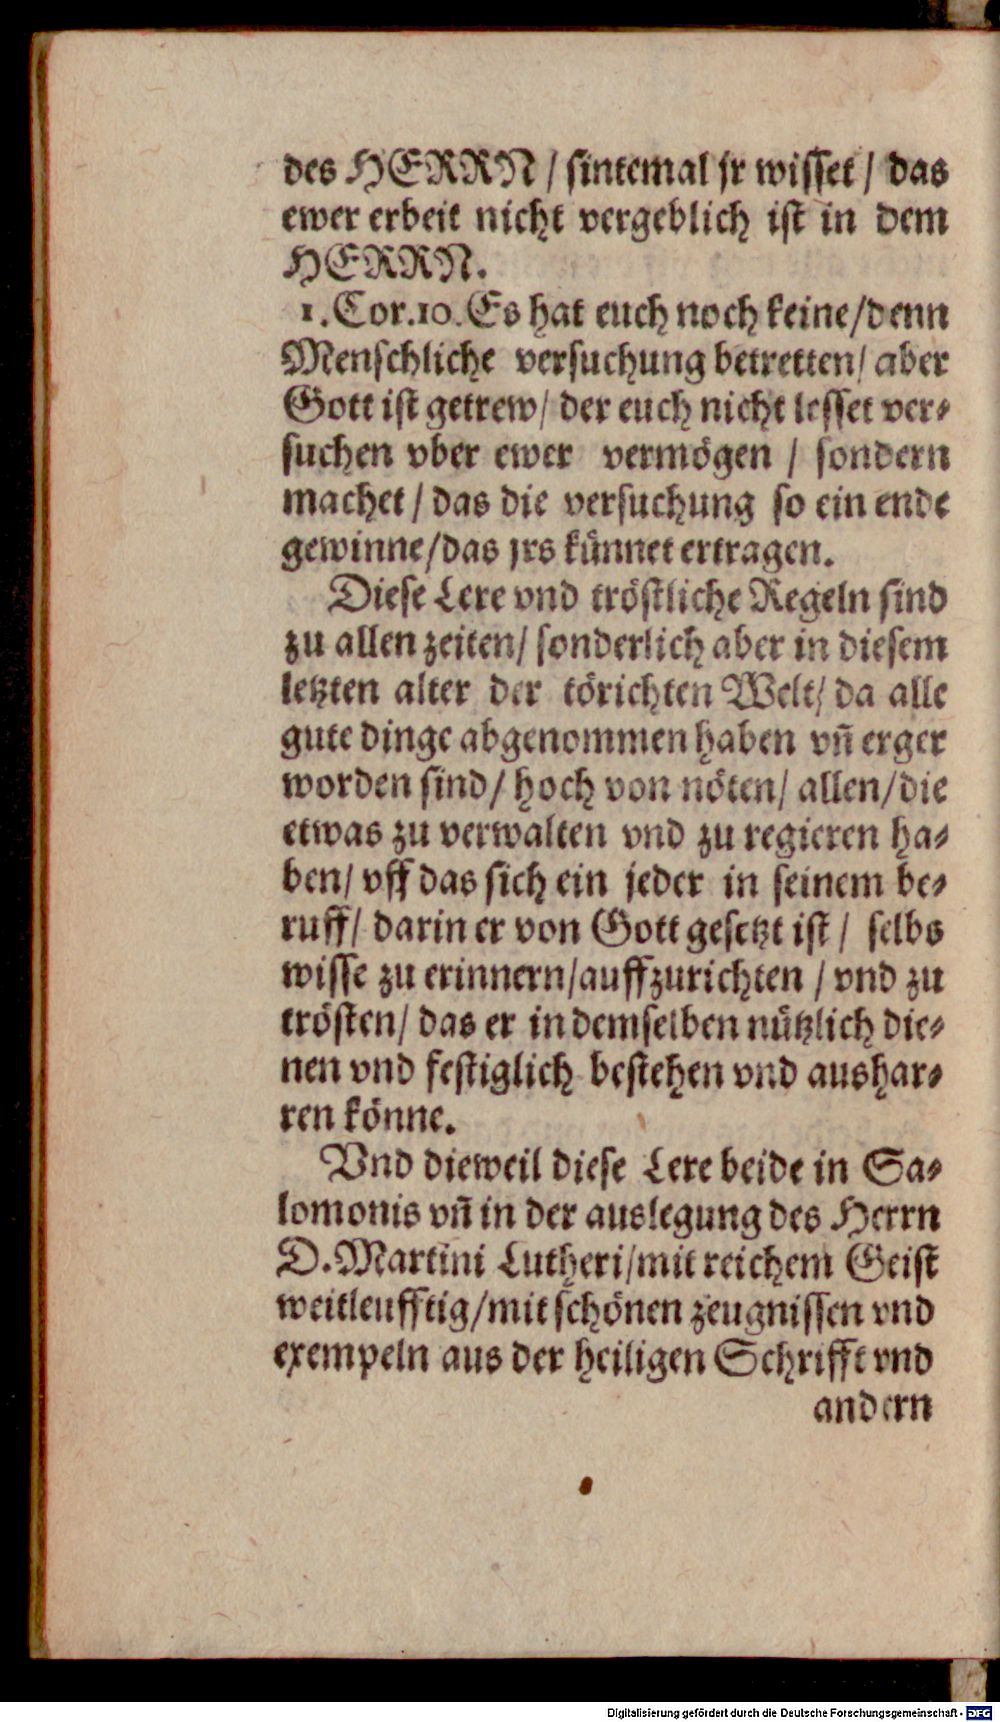 des HERRN / sintemal jr wisset / das
ewer erbeit nicht vergeblich ist in dem
HERRN.
1. Cor. 10. Es hat euch noch keine / denn
Menschliche versuchung betretten / aber
Gott ist getrew / der euch nicht lesset ver-
suchen vber ewer vermögen / sondern
machet / das die versuchung so ein ende
gewinne / das jrs künnet ertragen.
Diese Lere vnd tröstliche Regeln sind
zu allen zeiten / sonderlich aber in diesem
letzten alter der törichten Welt / da alle
gute dinge abgenommen haben vñ erger
worden sind / hoch von nöten / allen / die
etwas zu verwalten vnd zu regieren ha-
ben / vff das sich ein jeder in seinem be-
ruff / darin er von Gott gesetzt ist / selbs
wisse zu erinnern / auffzurichten / vnd zu
trösten / das er in demselben nützlich die-
nen vnd festiglich bestehen vnd aushar-
ren könne.
Vnd dieweil diese Lere beide in Sa-
lomonis vñ in der auslegung des Herrn
D. Martini Lutheri / mit reichem Geist
weitleufftig / mit schönen zeugnissen vnd
exempeln aus der heiligen Schrifft vnd
andern
Digitalisierung gefördert durch die Deutsche Forschungsgemeinschaft - DFG